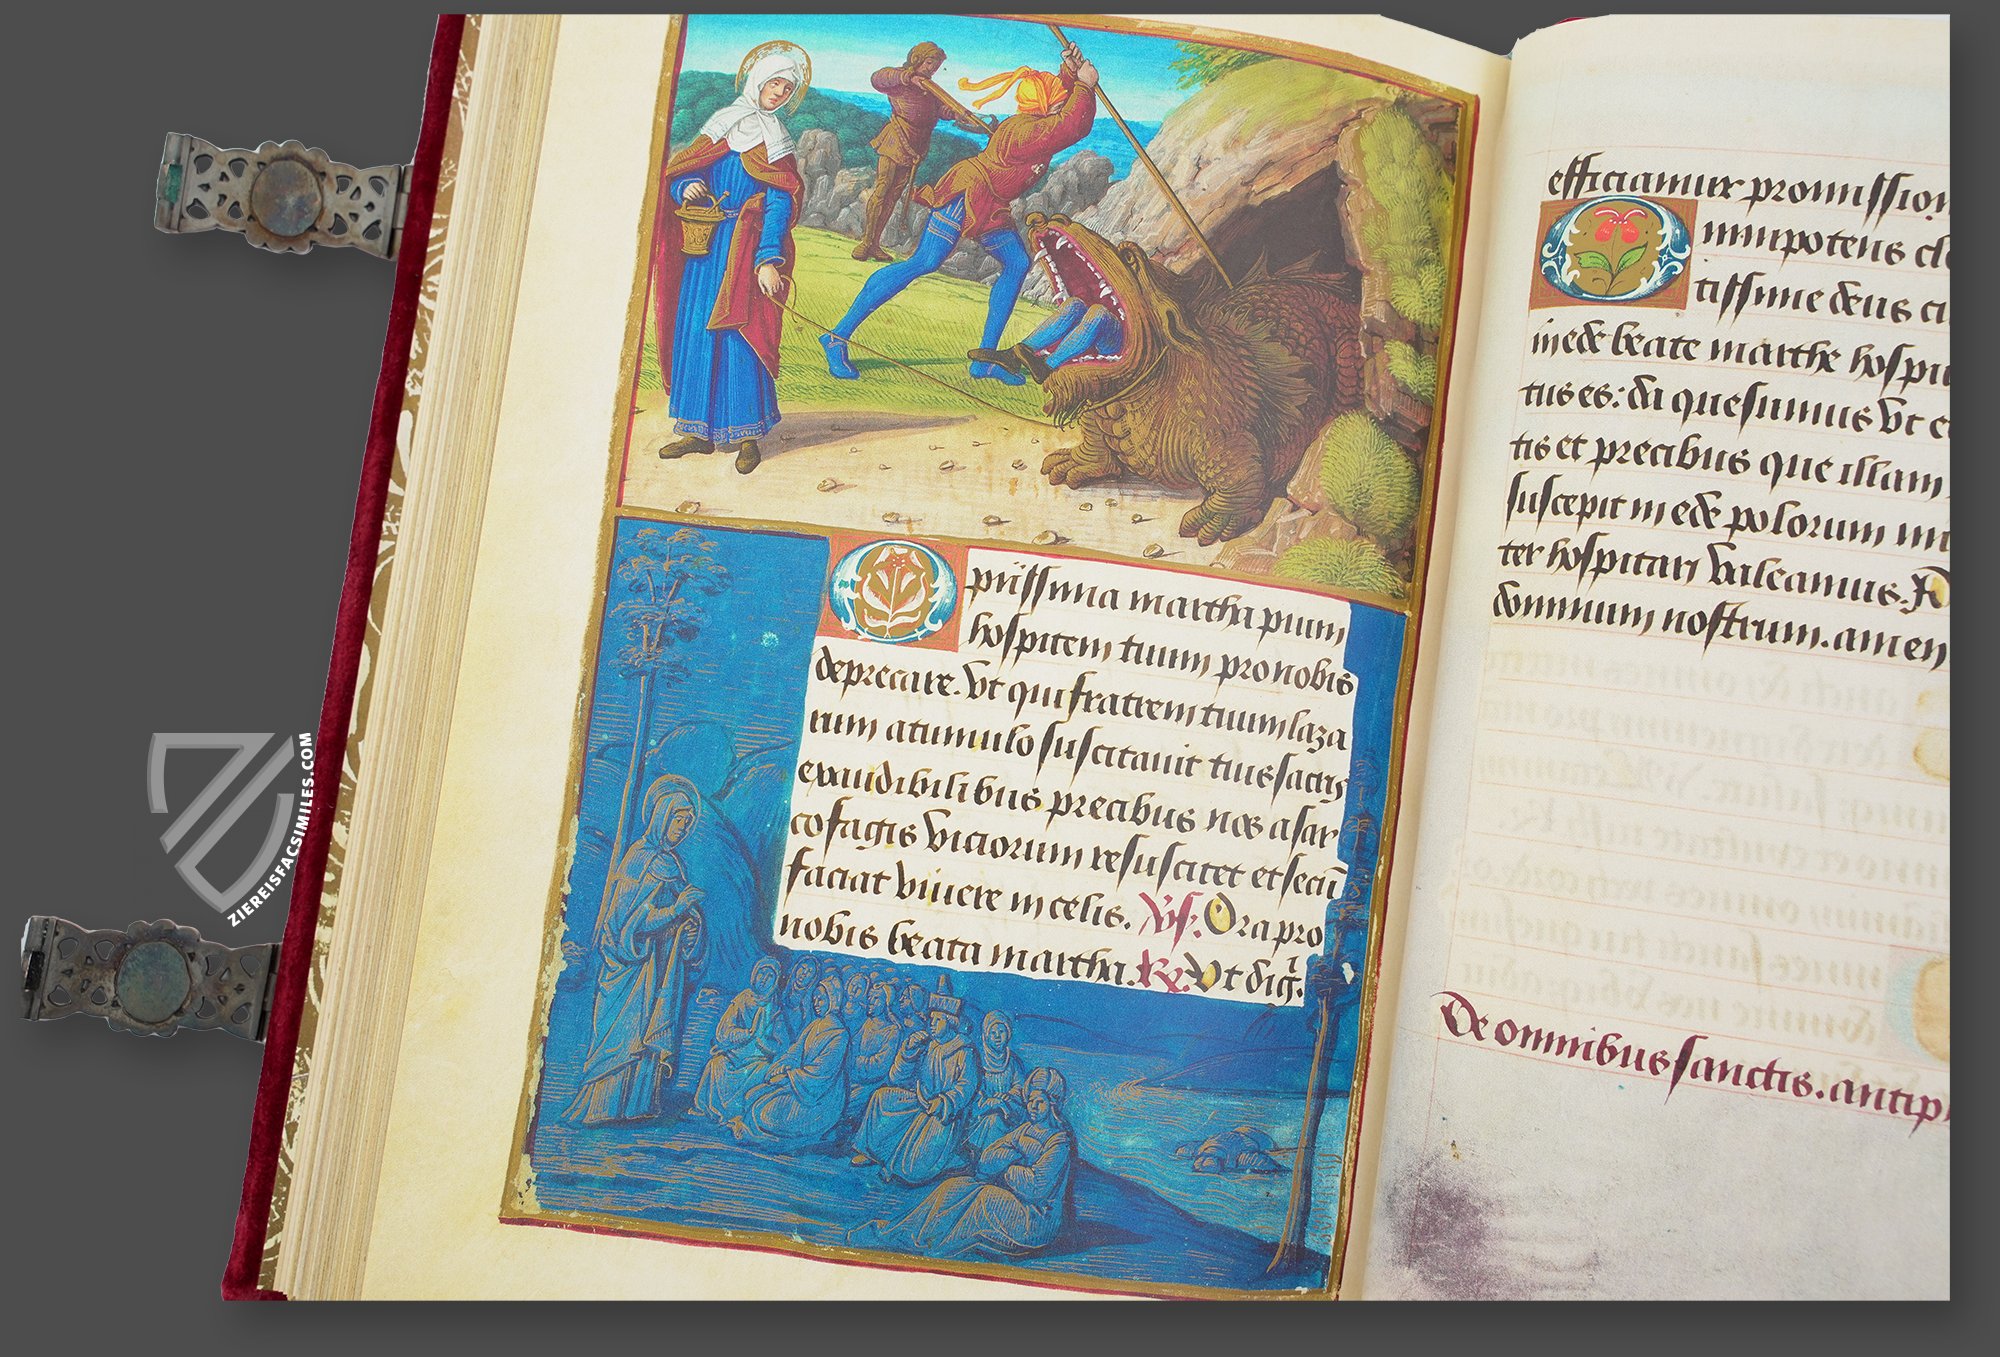 O piissima martha pium
hospitem tuum pro nobis
deprecare. Ut qui fratrem tuum laza
rum a tumulo suscitavit tuis sacris
exaudibilibus precibus nos a sar
cofagis viciorum resuscitet et secū
faciat vivere in celis. Vs. Ora pro
nobis beata martha. Rx. Ut dig̃.
efficiamur promission
Omnipotens cle
tissime deus cu
in ede beate marthe hospi
tus es: da quesumus ut
tis et precibus que illam
suscepit in ede polorum
ter hospitari valeamus.
dominum nostrum. amen
De omnibus sanctis. antiph
ZIEREISFACSIMILES.COM